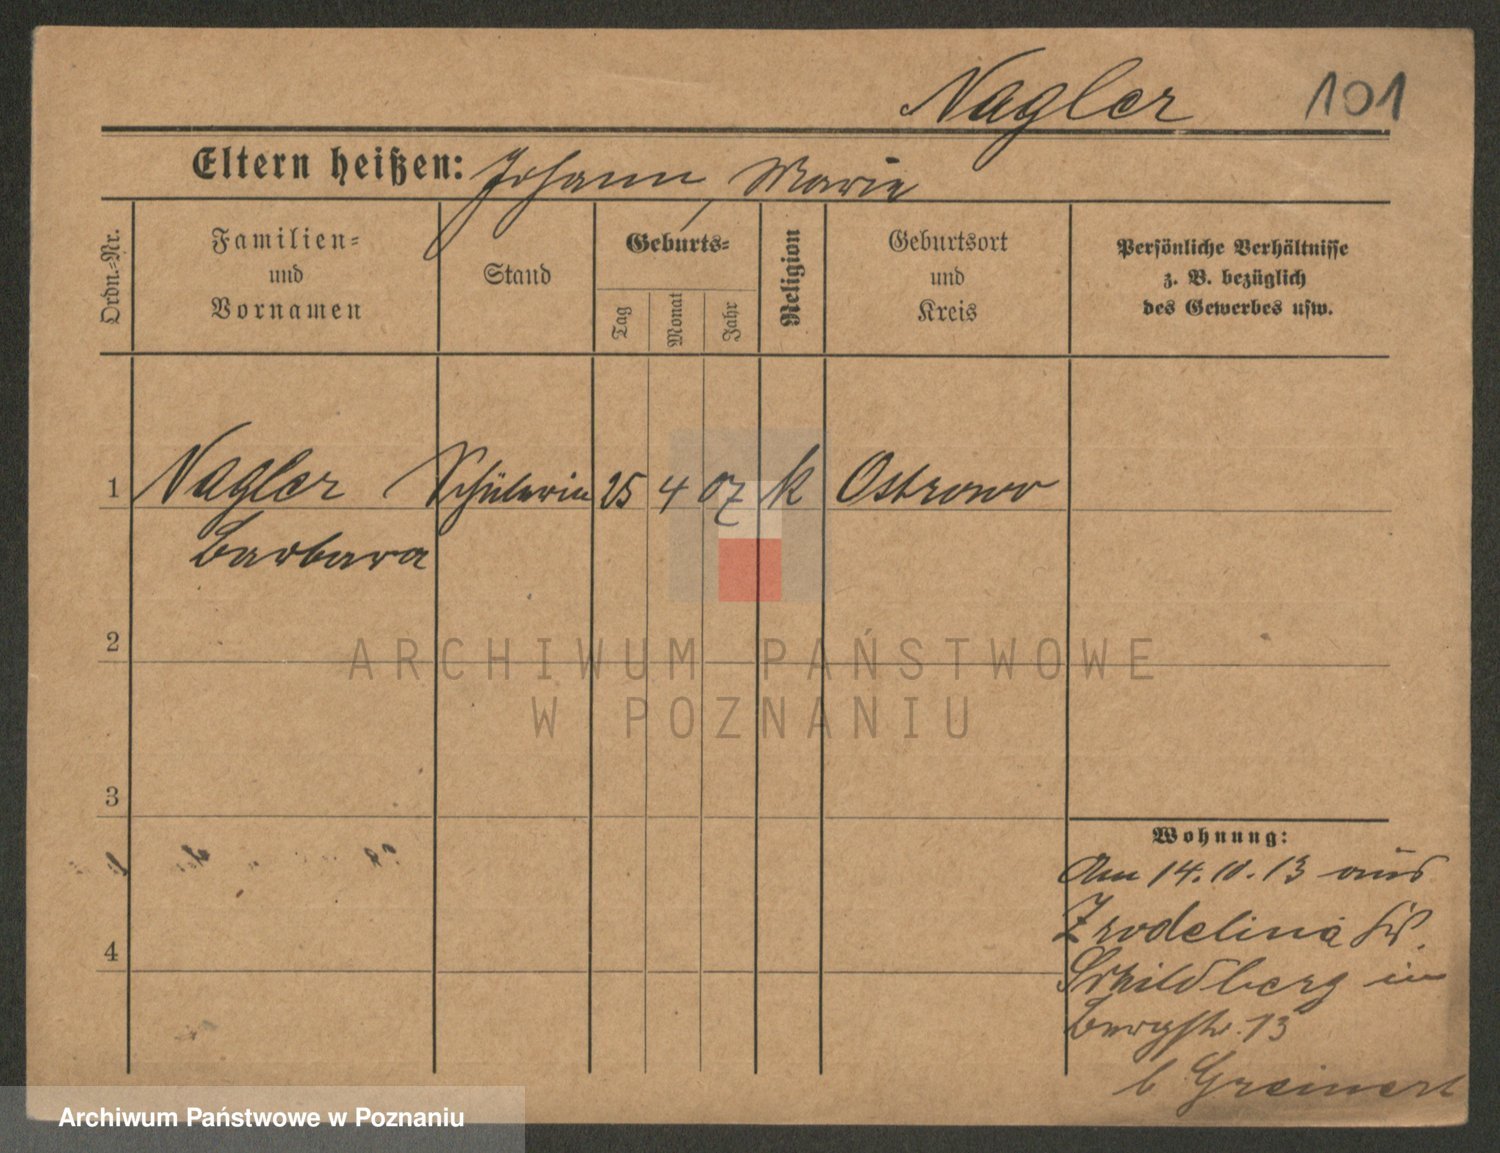 Nagler 101
Eltern heißen: Johann, Marie
Ordn.-Nr.
Familien-
und
Vornamen
Stand
Geburts-
Tag
Monat
Jahr
Religion
Geburtsort
und
Kreis
Persönliche Verhältnisse
z. B. bezüglich
des Gewerbes usw.
1 Nagler Schülerin 25 4 07 k Ostrowo
Barbara
2
3
4
Wohnung:
Am 14.10.13 aus
Schildberg in
Bergstr. 13
b Greinert
ARCHIWUM PAŃSTWOWE
W POZNANIU
Archiwum Państwowe w Poznaniu